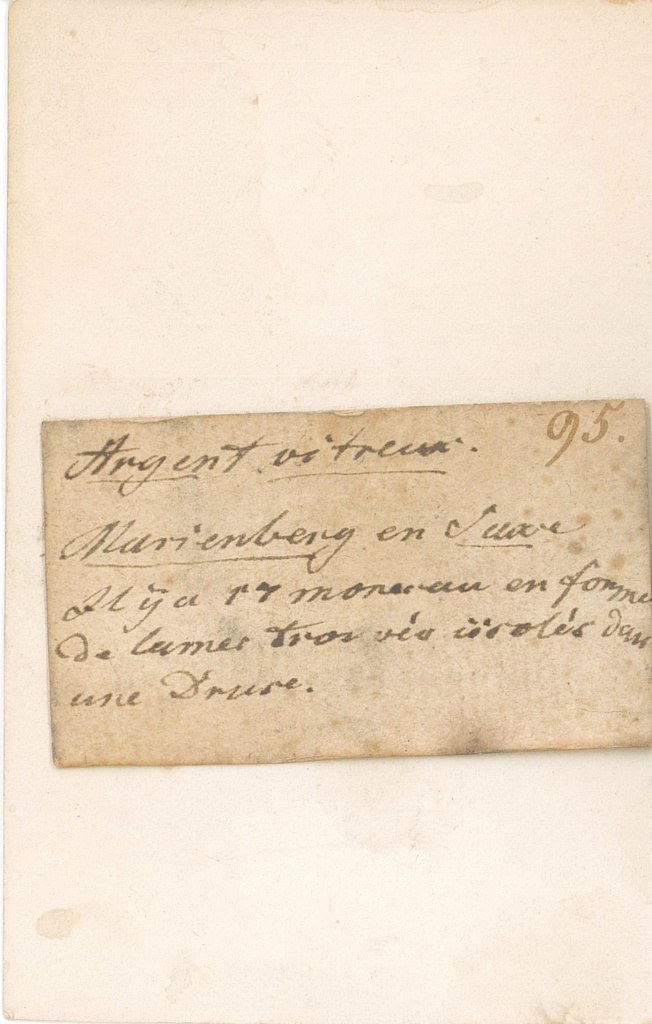 Argent vitreux. 95.
Marienberg en Saxe
Il ÿ a 17 moreceau en forme
de lames trouvés iisolés dans
une Druse.